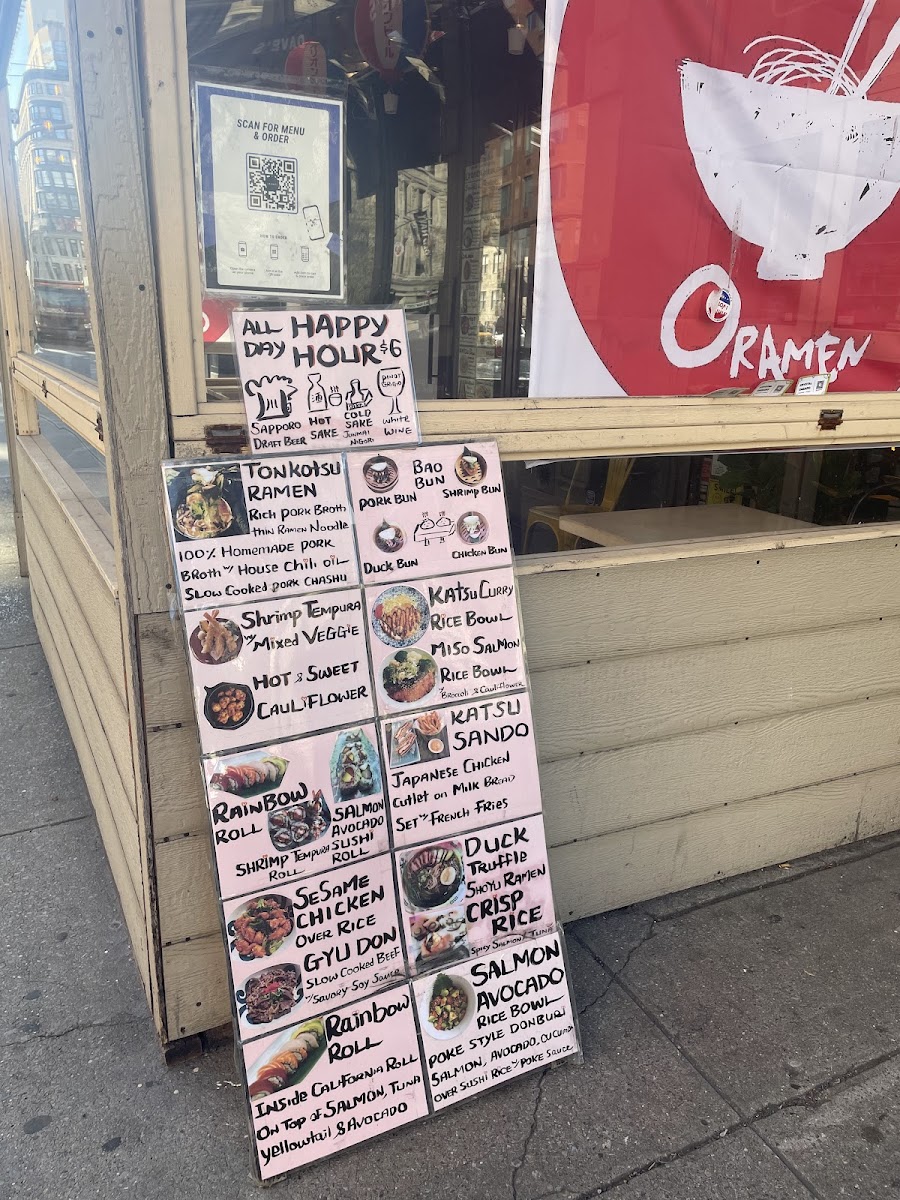 SCAN FOR MENU
& ORDER
ORAMEN
ALL DAY HAPPY HOUR $6
SAPPORO DRAFT BEER
酒
HOT SAKE
COLD SAKE
JUNMAI NIGORI
PINOT GRIGIO
WHITE WINE
TONKOTSU
RAMEN
RICH PORK BROTH
THIN RAMEN NOODLE
100% HOMEMADE PORK
BROTH W/ HOUSE CHILI OIL
SLOW COOKED PORK CHASHU
BAO
BUN
PORK BUN
SHRIMP BUN
DUCK BUN
CHICKEN BUN
SHRIMP TEMPURA
W/ MIXED VEGGIE
HOT & SWEET
CAULIFLOWER
KATSU CURRY
RICE BOWL
MISO SALMON
RICE BOWL
W/ BROCOLI & CAULIFLOWER
RAINBOW
ROLL
SHRIMP TEMPURA
ROLL
SALMON
AVOCADO
SUSHI
ROLL
KATSU
SANDO
JAPANESE CHICKEN
CUTLET ON MILK BREAD
SET W/ FRENCH FRIES
SESAME
CHICKEN
OVER RICE
GYU DON
SLOW COOKED BEEF
W/ SAVORY SOY SAUCE
DUCK
TRUFFLE
SHOYU RAMEN
CRISP
RICE
SPICY SALMON / TUNA
RAINBOW
ROLL
INSIDE CALIFORNIA ROLL
ON TOP OF SALMON, TUNA
YELLOWTAIL & AVOCADO
SALMON
AVOCADO
RICE BOWL
POKE STYLE DONBURI
SALMON, AVOCADO, CUCUMBER
OVER SUSHI RICE W/ POKE SAUCE